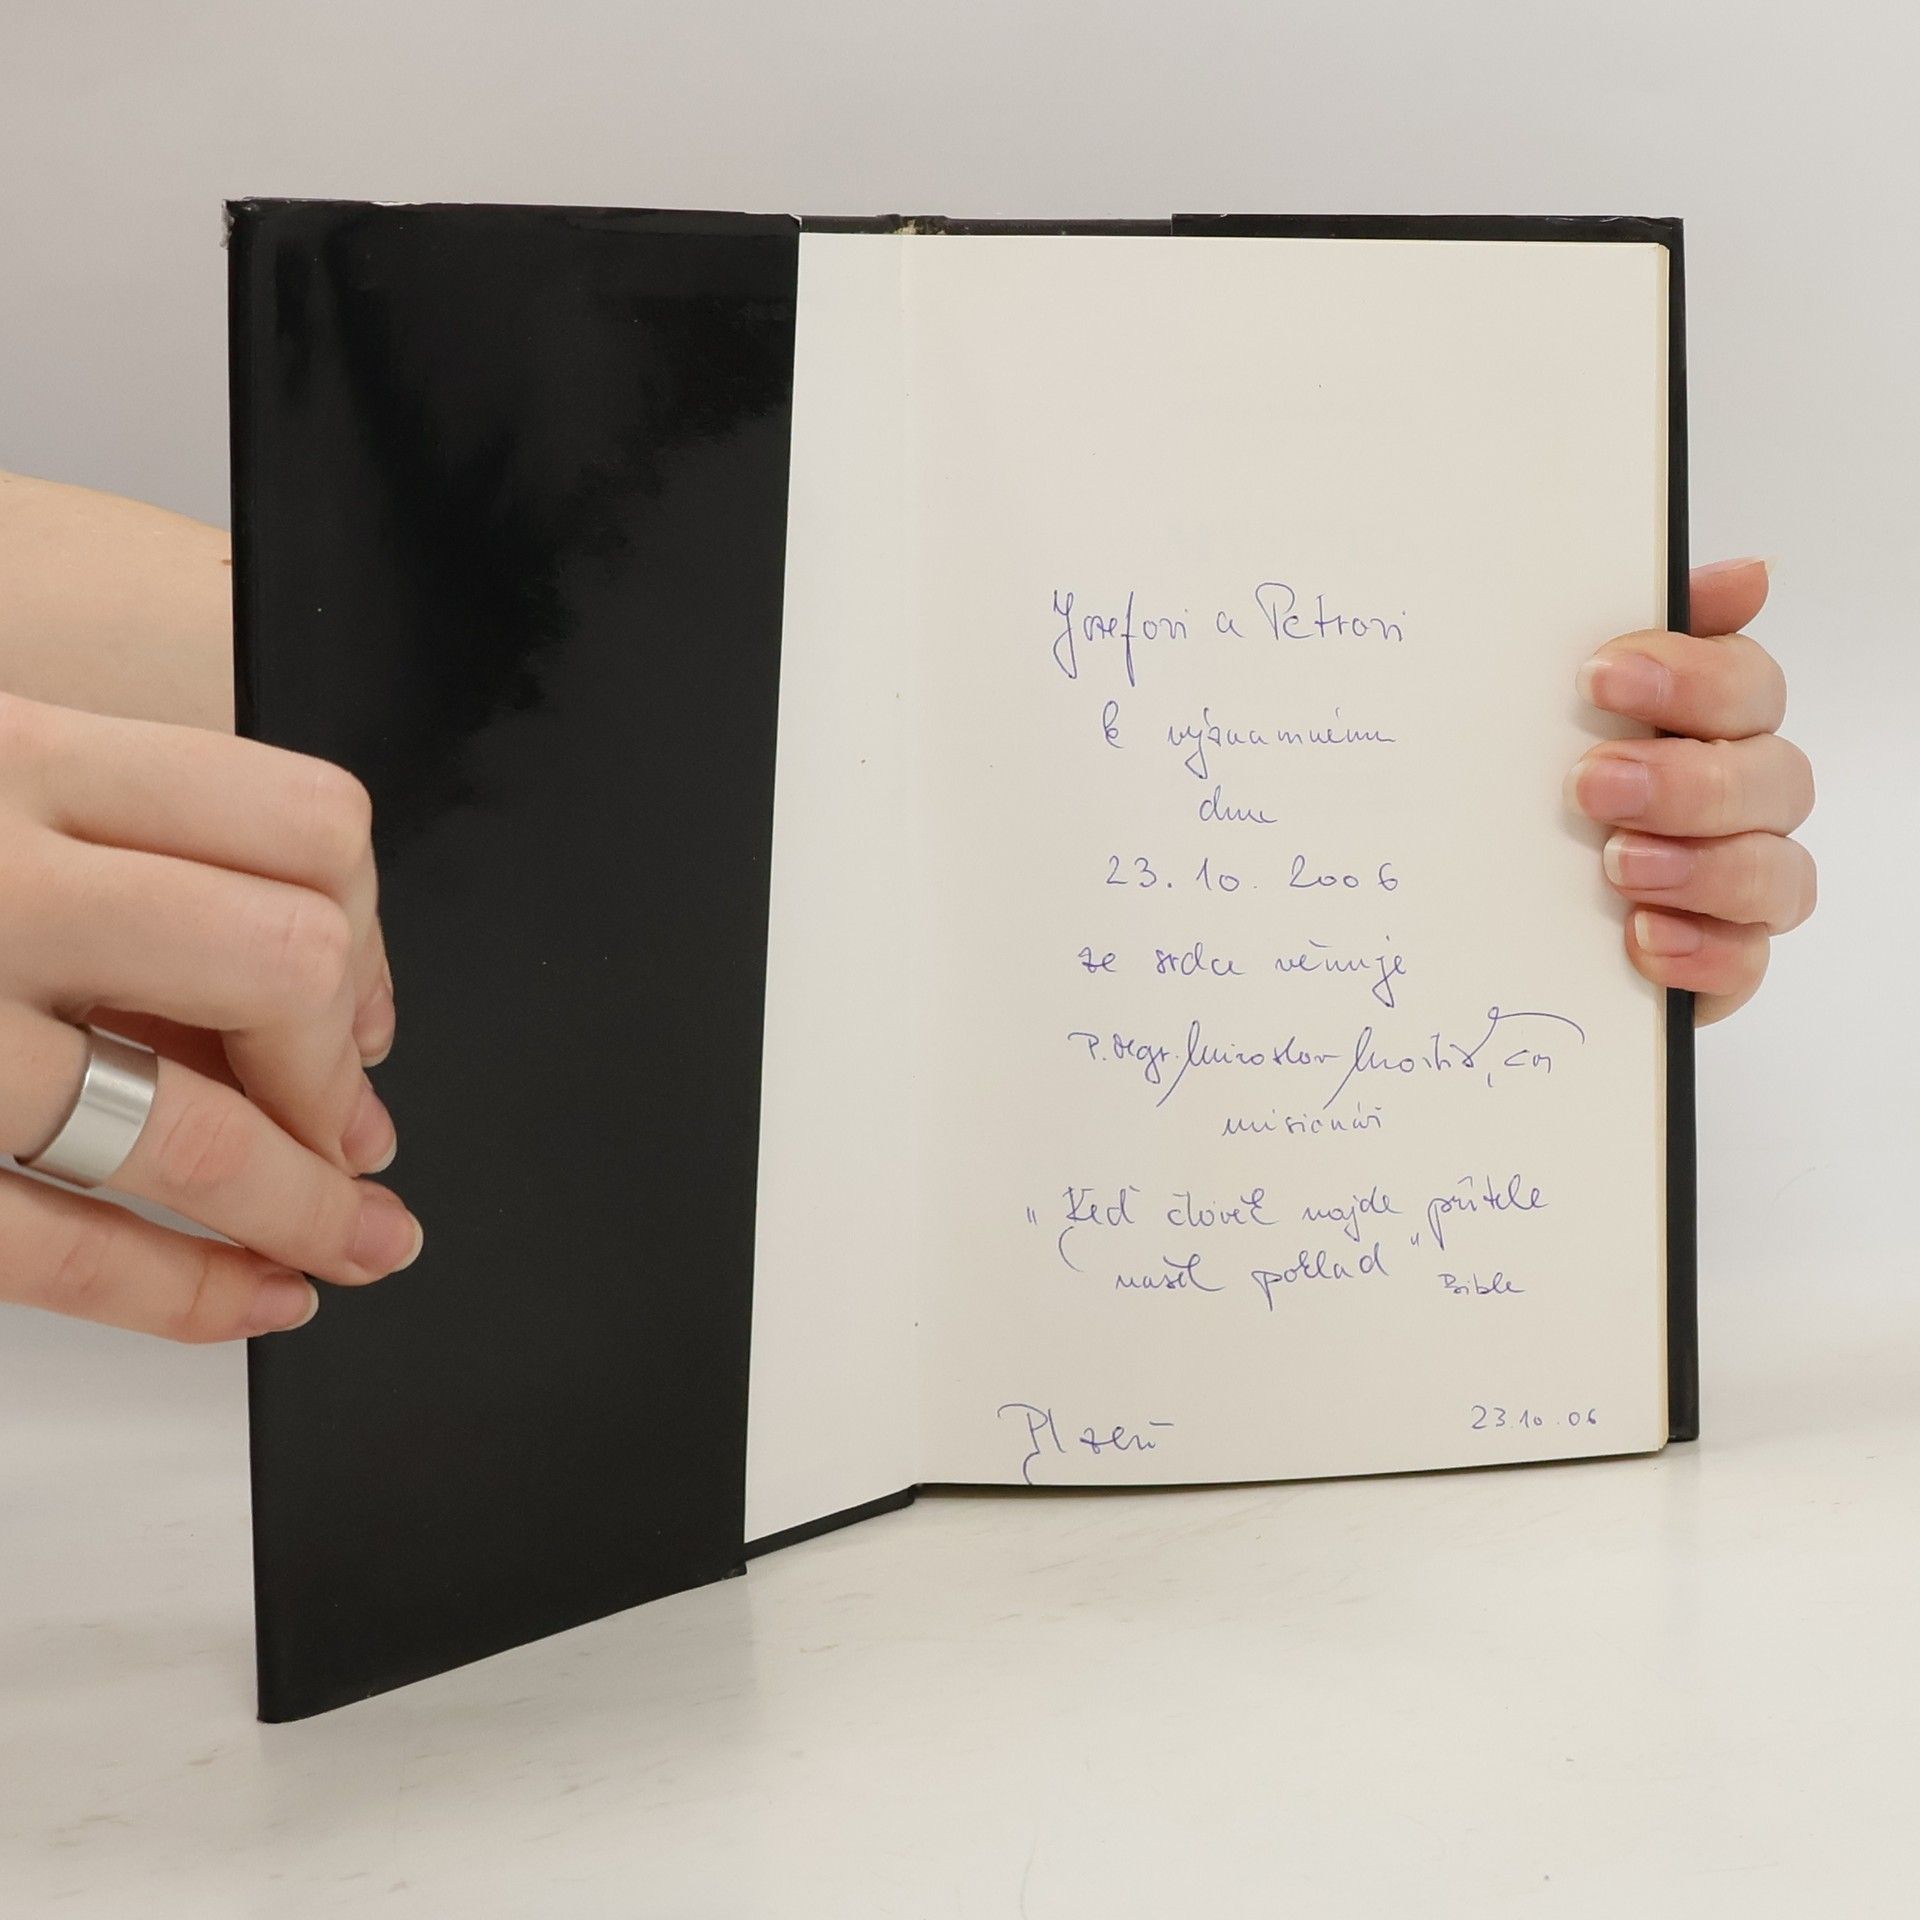 Josefovi a Petrovi
k významnému
dnu
23. 10. 2006
ze srdce věnuje
P. Mgr. Miroslav
misionář
"Keď člověk najde přítele
našel poklad" Bible
Plzeň
23.10.06